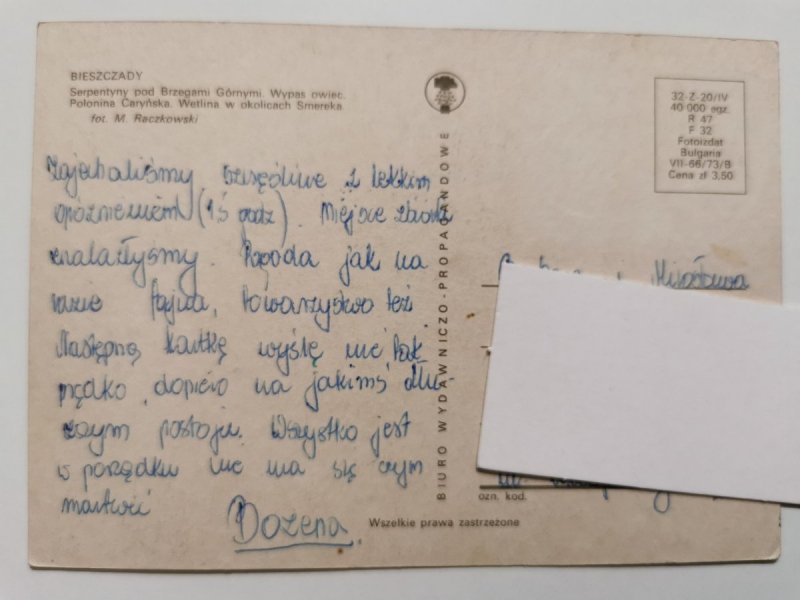 BIESZCZADY
Serpentyny pod Brzegami Górnymi. Wypas owiec.
Połonina Caryńska. Wetlina w okolicach Smereka.
fot. M. Raczkowski
32-Z-20/IV
40 000 egz.
R 47
F 32
Fotoizdat
Bulgaria
VII-66/73/B
Cena zł 3,50
Zajechaliśmy szczęśliwie z lekkim
opóźnieniem (1,5 godz). Miejsce zbiórki
znalazłyśmy. Pogoda jak na
razie fajna, towarzystwo też.
Następną kartkę wyślę nie tak
prędko, dopiero na jakimś dłu-
ższym postoju. Wszystko jest
w porządku nie ma się czym
martwić
Bożena
BIURO WYDAWNICZO-PROPAGANDOWE
ozn. kod.
Wszelkie prawa zastrzeżone